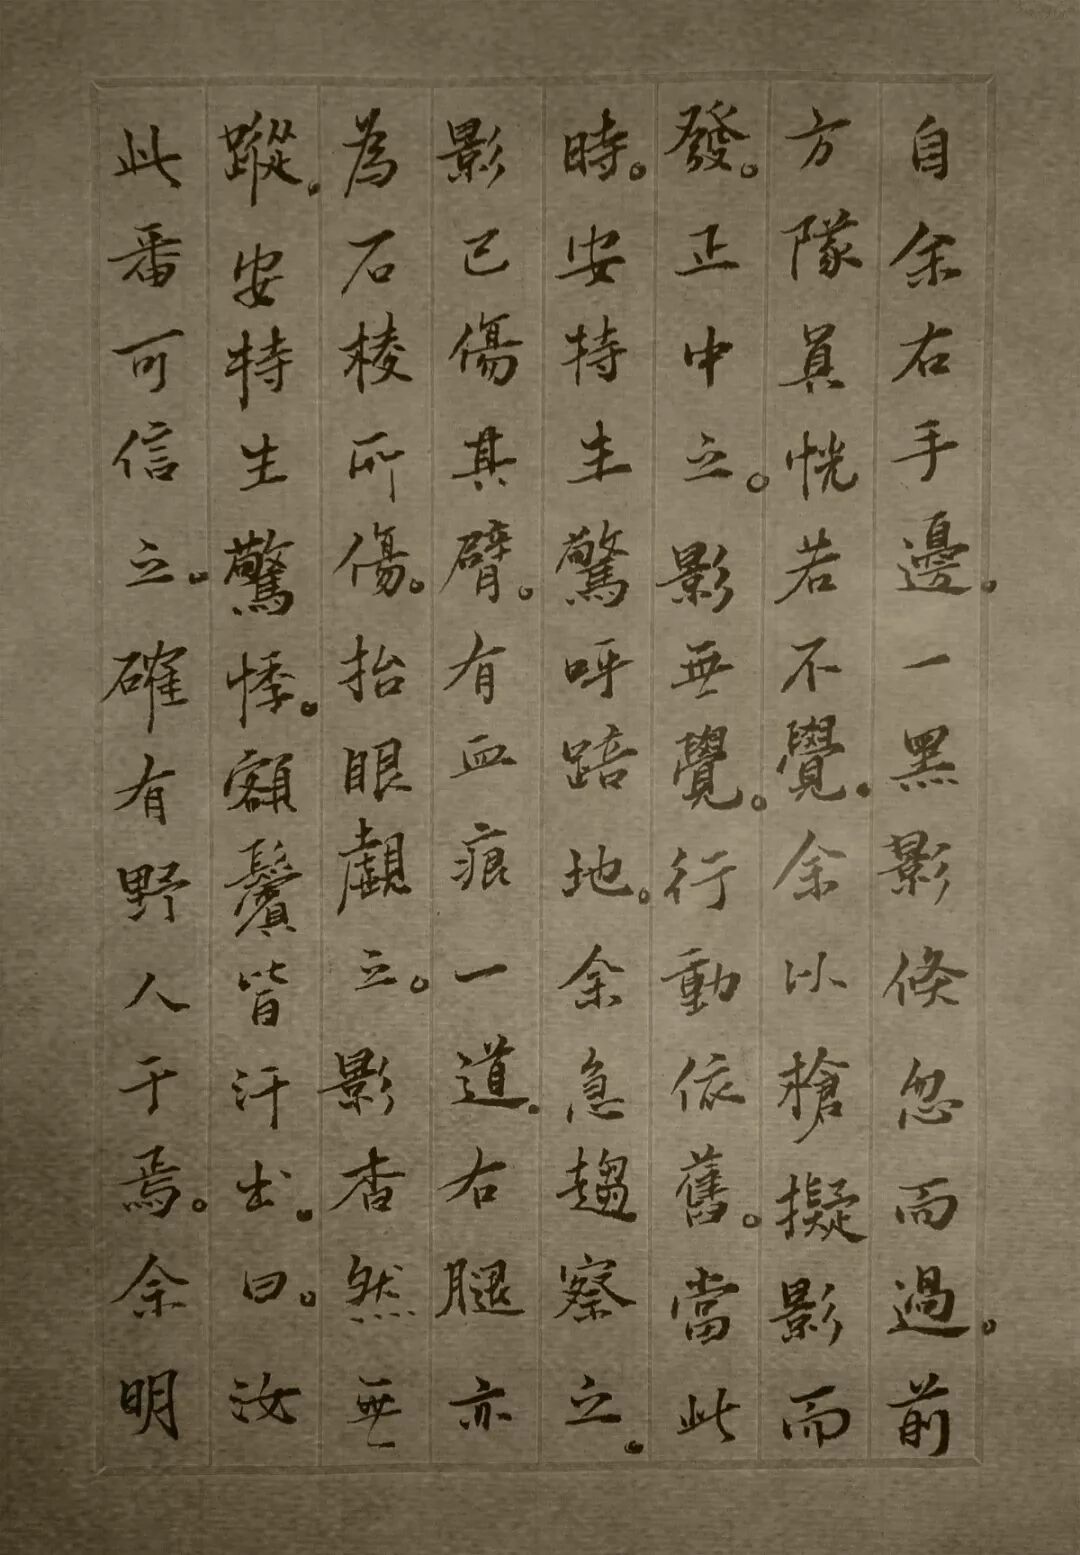 自余右手邊。一黑影倏忽而過。前
方隊員恍若不覺。余以槍擬影而
發。正中之。影無覺。行動依舊。當此
時。安特生驚呼踣地。余急趨察之。
影已傷其臂。有血痕一道。右腿亦
為石棱所傷。抬眼覷之。影杳然無
蹤。安特生驚悸。額鬢皆汗出。曰。汝
此番可信之。確有野人于焉。余明